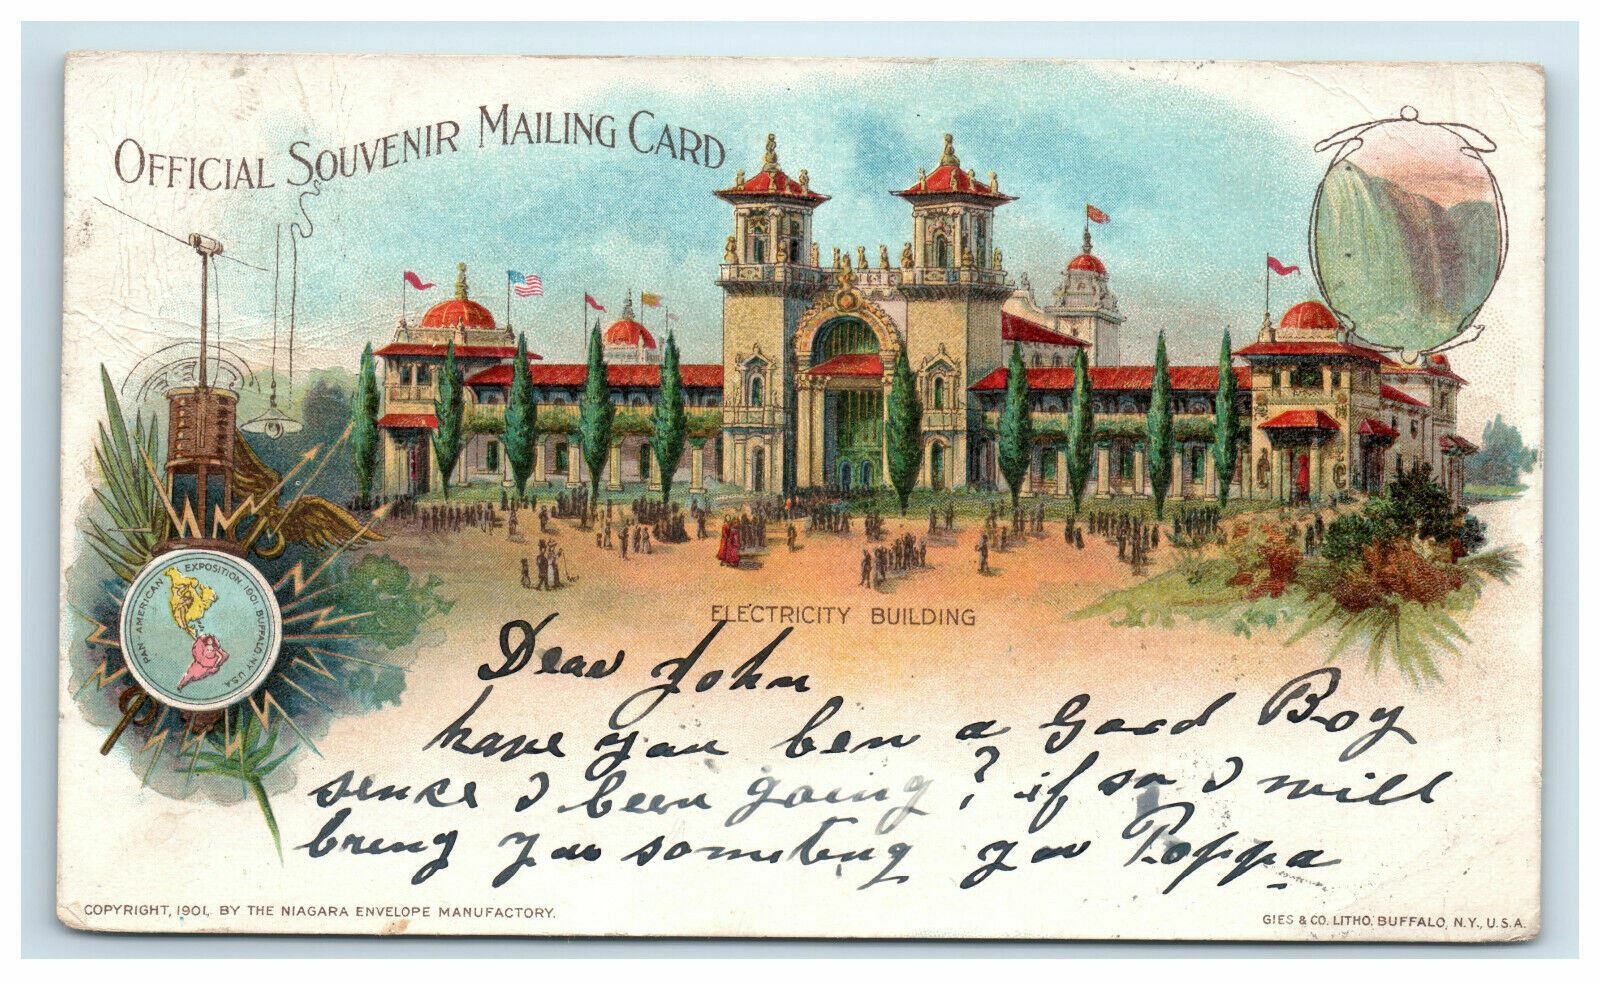 OFFICIAL SOUVENIR MAILING CARD
PAN AMERICAN EXPOSITION. 1901. BUFFALO, N.Y. U.S.A.
ELECTRICITY BUILDING
Dear John
have you ben a Good Boy
sence I been going? if so I will
breng you someteng you Poppa
COPYRIGHT, 1901, BY THE NIAGARA ENVELOPE MANUFACTORY.
GIES & CO. LITHO. BUFFALO, N.Y., U.S.A.